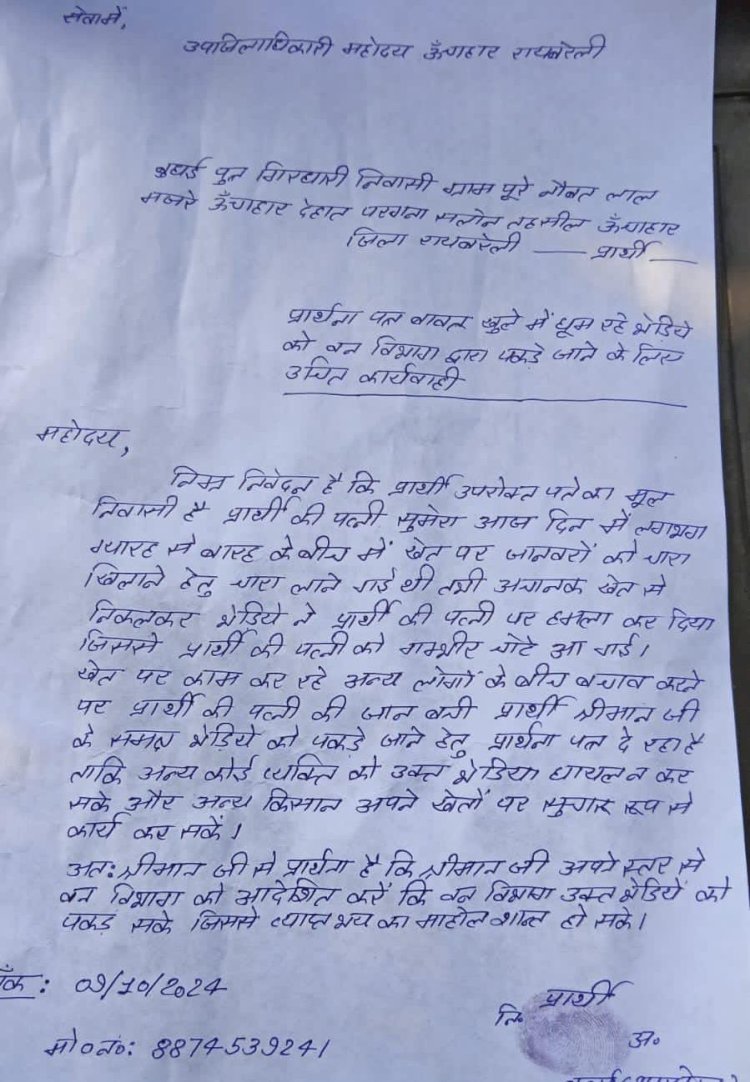 सेवामें,
उपजिलाधिकारी महोदय ऊँचाहार रायबरेली
पुत्र गिरधारी निवासी ग्राम पूरे नौबत लाल
मजरे ऊँचाहार देहात परगना सलोन तहसील ऊँचाहार
जिला रायबरेली — प्रार्थी —
प्रार्थना पत्र बावत खुले में घूम रहे भेड़िये
को वन विभाग द्वारा पकड़े जाने के लिए
उचित कार्यवाही
महोदय,
निम्न निवेदन है कि प्रार्थी उपरोक्त पते का मूल
निवासी है प्रार्थी की पत्नी सुमेरा आज दिन में लगभग
ग्यारह से बारह के बीच में खेत पर जानवरों को चारा
खिलाने हेतु चारा लाने गई थी तभी अचानक खेत से
निकलकर भेड़िये ने प्रार्थी की पत्नी पर हमला कर दिया
जिससे प्रार्थी की पत्नी को गम्भीर चोटे आ गई।
खेत पर काम कर रहे अन्य लोगों के बीच बचाव करने
पर प्रार्थी की पत्नी की जान बची प्रार्थी श्रीमान जी
के समक्ष भेड़िये को पकड़े जाने हेतु प्रार्थना पत्र दे रहा है
ताकि अन्य कोई व्यक्ति को उक्त भेडिया घायल न कर
सके और अन्य किसान अपने खेतों पर सुचारू रूप से
कार्य कर सकें।
अत: श्रीमान जी से प्रार्थना है कि श्रीमान जी अपने स्तर से
वन विभाग को आदेशित करें कि वन विभाग उक्त भेड़िये को
पकड़ सके जिससे व्याप्त भय का माहोल शान्त हो सके।
09/10/2024
प्रार्थी
नि० अ०
मो०नं०: 8874539241